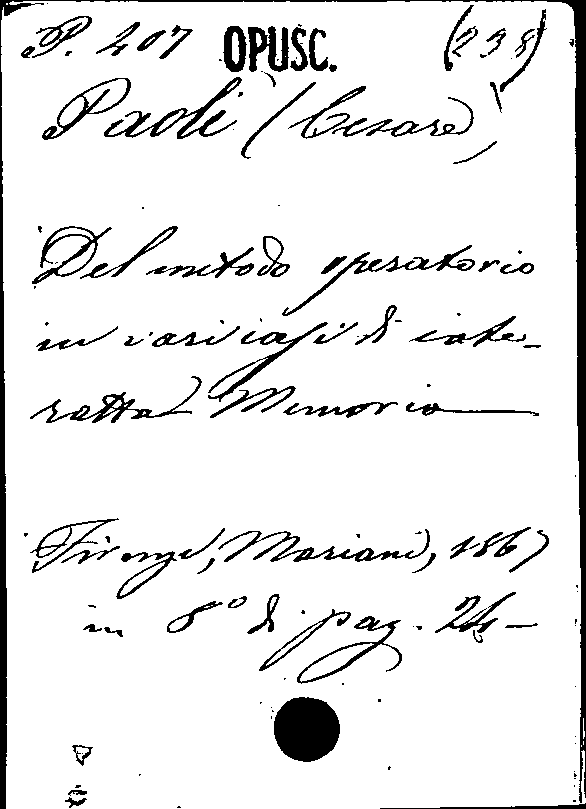 P. 407 OPUSC. (238)
Paoli (Cesare)
Del metodo operatorio
in varii casi di cate-
ratta Memoria
Firenze, Mariani, 1867
in 8º di pag. 24-